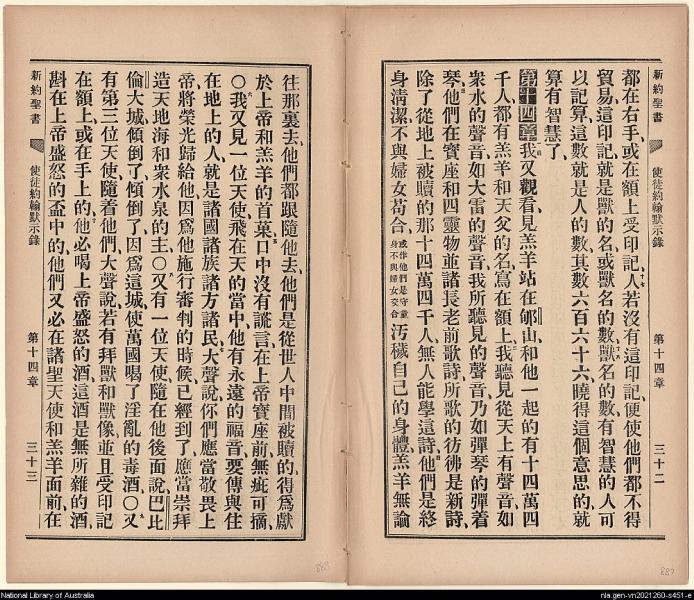 新約聖書 使徒約翰默示錄 第十四章 三十二
都在右手、或在額上受印記、人若沒有這印記、便使他們都不得
貿易、這印記就是獸的名、或獸名的數、獸名的數有智慧的人可
以記算、這數就是人的數、其數六百六十六、曉得這個意思的就
算有智慧了、
第十四章 我又觀看見羔羊站在郇山、和他一起的有十四萬四
千人、都有羔羊和天父的名寫在額上、我聽見從天上有聲音、如
衆水的聲音、如大雷的聲音、我所聽見的聲音、乃如彈琴的彈着
琴、他們在寶座和四靈物並諸長老前歌詩、所歌的彷彿是新詩、
除了從地上被贖的那十四萬四千人、無人能學這詩、他們是終
身清潔不與婦女苟合 或作他們是守童身不與婦女交合 汚穢自己的身體、羔羊無論
往那裏去、他們都跟隨他去、他們是從世人中間被贖的、得爲獻
於上帝和羔羊的首菓、口中沒有謊言、在上帝寶座前無疵可摘、
〇我又見一位天使、飛在天的當中、他有永遠的福音、要傳與住
在地上的人、就是諸國諸族諸方諸民、大聲說、你們應當敬畏上
帝、將榮光歸給他、因爲他施行審判的時候、已經到了、應當崇拜
造天地海和衆水泉的主〇又有一位天使隨在他後面說、巴比
倫大城傾倒了、傾倒了、因爲這城使萬國喝了淫亂的毒酒〇又
有第三位天使、隨着他們、大聲說、若有拜獸和獸像、並且受印記
在額上、或在手上的、他必喝上帝盛怒的酒、這酒是無所雜的酒、
斟在上帝盛怒的盃中的、他們又必在諸聖天使和羔羊面前、在
新約聖書 使徒約翰默示錄 第十四章 三十三
887
888
National Library of Australia
nla.gen-vn2021260-s451-e